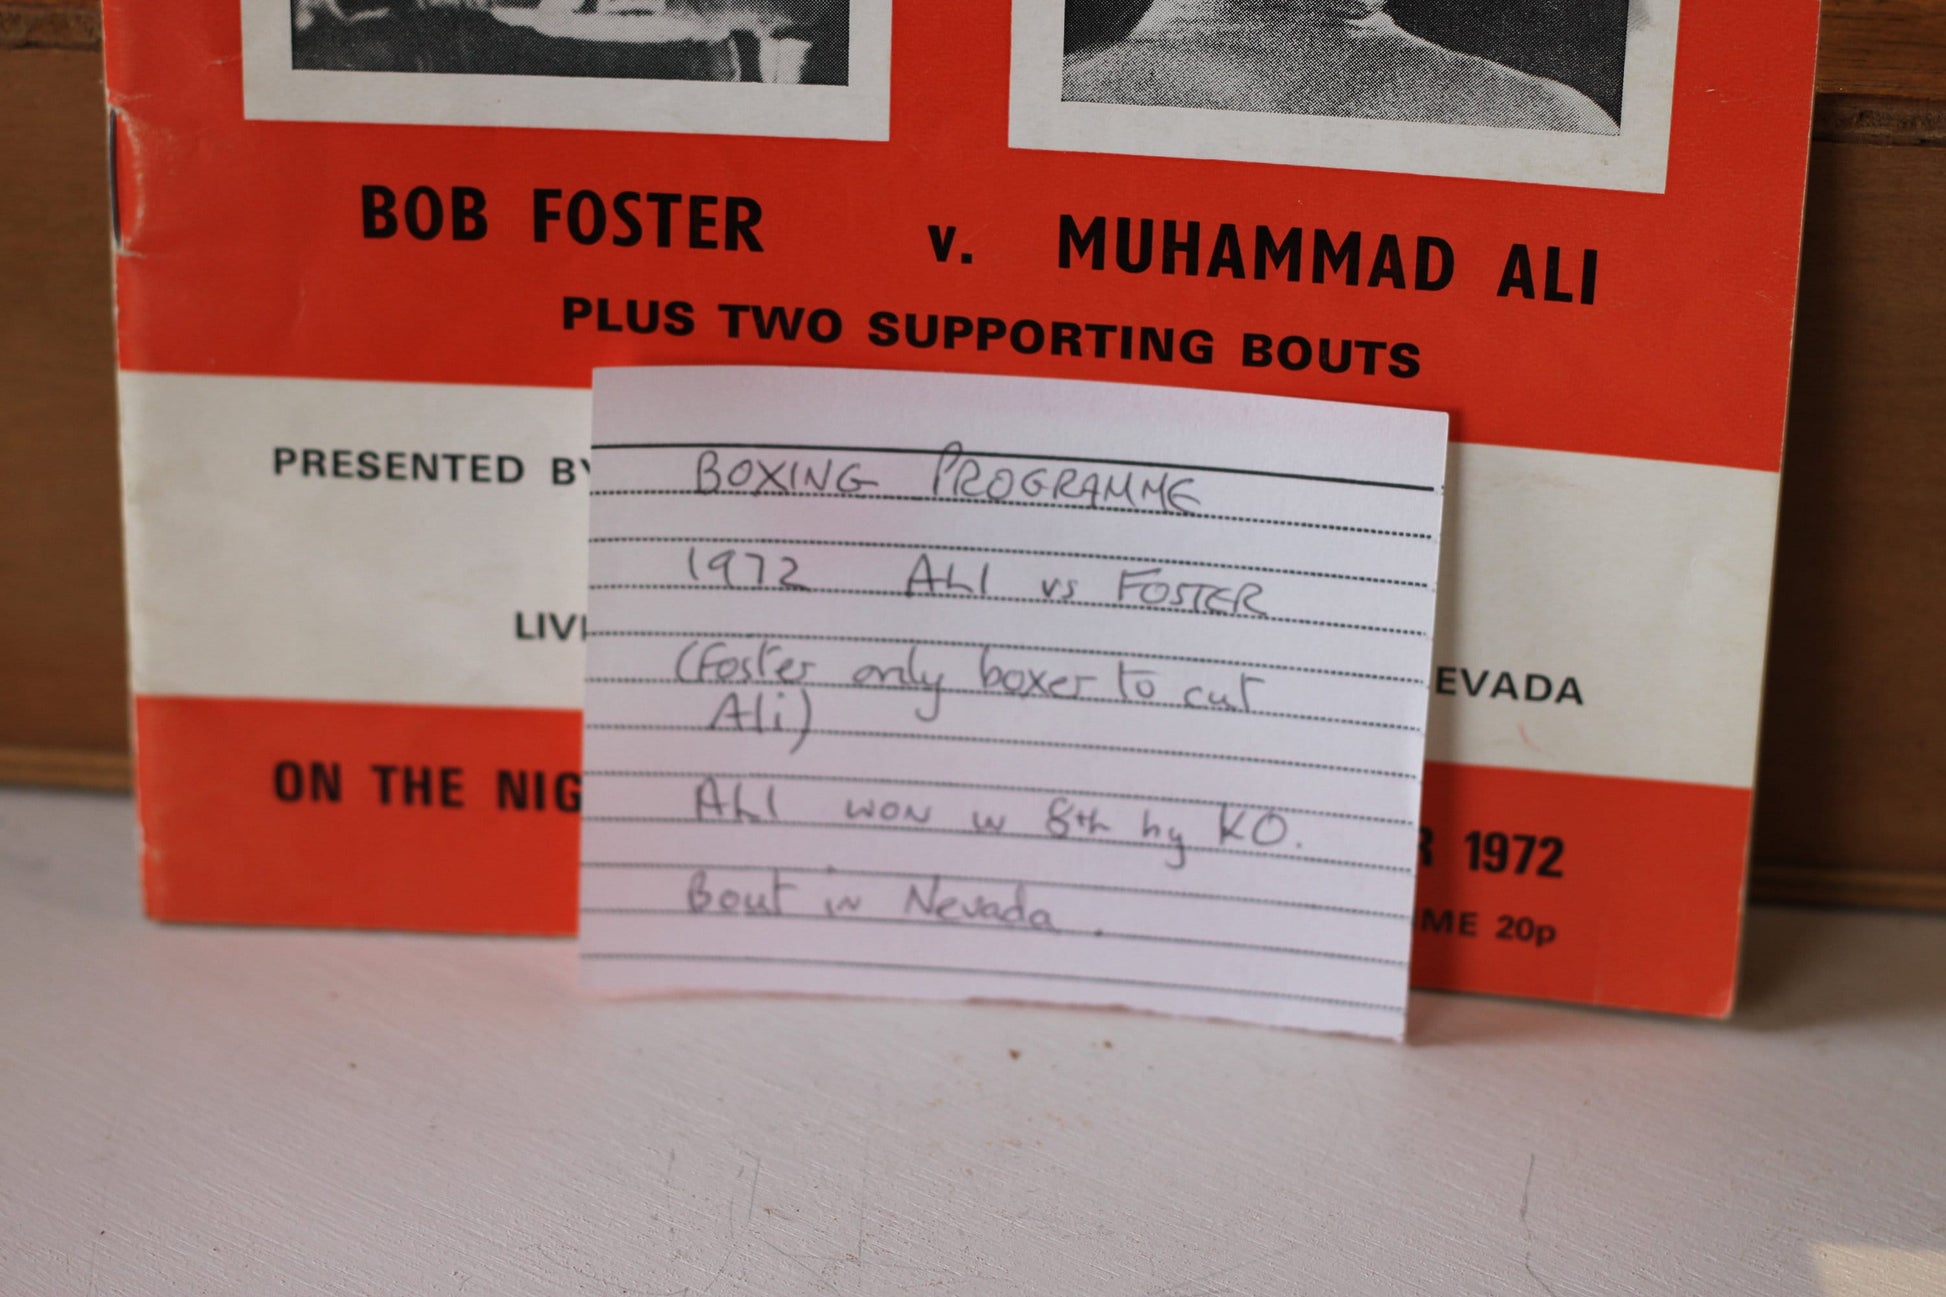 BOB FOSTER v. MUHAMMAD ALI
PLUS TWO SUPPORTING BOUTS
PRESENTED BY
LIV EVADA
ON THE NIG R 1972
ME 20p
BOXING PROGRAMME
1972 ALI vs FOSTER
(Foster only boxer to cut
Ali)
ALI WON IN 8th by KO.
Bout in Nevada.